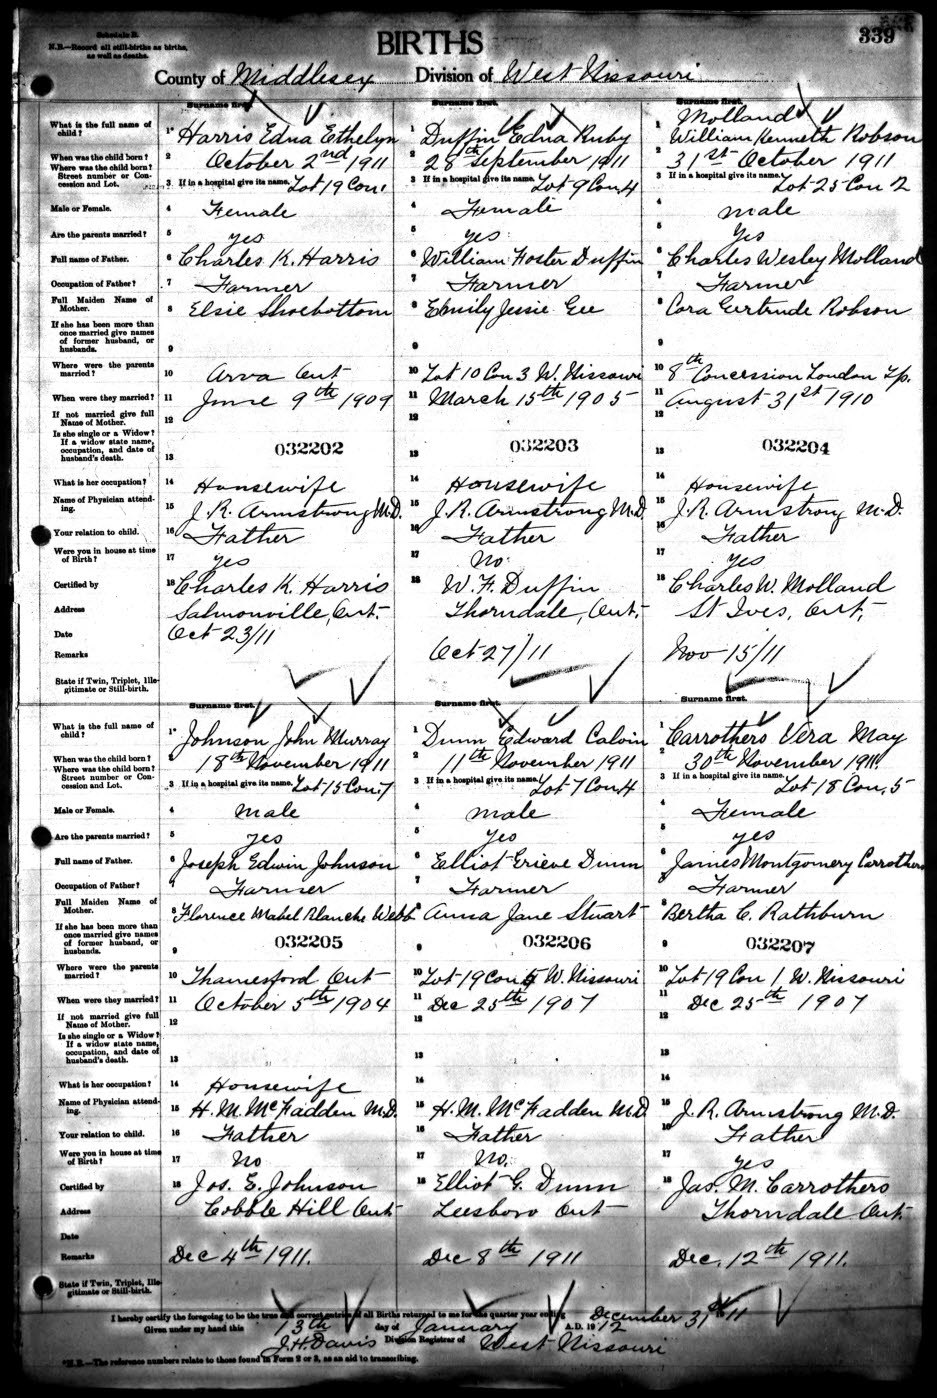 Schedule B.
N.B.—Record all still-births as births, as well as deaths.
BIRTHS
339
County of Middlesex Division of West Nissouri
Surname first. Surname first. Surname first.
What is the full name of child? 1 Harris Edna Ethelyn 1 Duffin Edna Ruby 1 Molland William Kenneth Robson
When was the child born? 2 October 2nd 1911 2 28th September 1911 2 31st October 1911
Where was the child born? Street number or Concession and Lot. 3 If in a hospital give its name. Lot 19 Con 1 3 If in a hospital give its name. Lot 9 Con 4 3 If in a hospital give its name. Lot 25 Con 2
Male or Female. 4 Female 4 Female 4 male
Are the parents married? 5 yes 5 yes 5 Yes
Full name of Father. 6 Charles K. Harris 6 William Foster Duffin 6 Charles Wesley Molland
Occupation of Father? 7 Farmer 7 Farmer 7 Farmer
Full Maiden Name of Mother. 8 Elsie Shoebottom 8 Emily Jessie Gee 8 Cora Gertrude Robson
If she has been more than once married give names of former husband, or husbands. 9 9 9
Where were the parents married? 10 Arva Ont 10 Lot 10 Con 3 W. Nissouri 10 8th Concession London Tp.
When were they married? 11 June 9th 1909 11 March 15th 1905 11 August 31st 1910
If not married give full Name of Mother. 12 12 12
Is she single or a Widow? If a widow state name, occupation, and date of husband's death. 13 032202 13 032203 13 032204
What is her occupation? 14 Housewife 14 Housewife 14 Housewife
Name of Physician attending. 15 J. R. Armstrong M.D. 15 J. R. Armstrong M.D. 15 J. R. Armstrong M.D.
Your relation to child. 16 Father 16 Father 16 Father
Were you in house at time of Birth? 17 yes 17 No 17 yes
Certified by 18 Charles K. Harris 18 W. F. Duffin 18 Charles W. Molland
Address Salmonville, Ont. Thorndale, Ont. St Ives, Ont.
Date Oct 23/11 Oct 27/11 Nov 15/11
Remarks
State if Twin, Triplet, Illegitimate or Still-birth.
Surname first. Surname first. Surname first.
What is the full name of child? 1 Johnson John Murray 1 Dunn Edward Calvin 1 Carrothers Vera May
When was the child born? 2 18th November 1911 2 11th November 1911 2 30th November 1911
Where was the child born? Street number or Concession and Lot. 3 If in a hospital give its name. Lot 15 Con 7 3 If in a hospital give its name. Lot 7 Con 4 3 If in a hospital give its name. Lot 18 Con. 5
Male or Female. 4 male 4 male 4 Female
Are the parents married? 5 yes 5 yes 5 yes
Full name of Father. 6 Joseph Edwin Johnson 6 Elliot Grieve Dunn 6 James Montgomery Carrothers
Occupation of Father? 7 Farmer 7 Farmer 7 Farmer
Full Maiden Name of Mother. 8 Florence Mabel Blanche Webb 8 Anna Jane Stuart 8 Bertha C. Rathburn
If she has been more than once married give names of former husband, or husbands. 9 032205 9 032206 9 032207
Where were the parents married? 10 Thamesford Ont 10 Lot 19 Con W. Nissouri 10 Lot 19 Con 1, W. Nissouri
When were they married? 11 October 5th 1904 11 Dec 25th 1907 11 Dec 25th 1907
If not married give full Name of Mother. 12 12 12
Is she single or a Widow? If a widow state name, occupation, and date of husband's death. 13 13 13
What is her occupation? 14 Housewife 14 14
Name of Physician attending. 15 H. M. McFadden M.D. 15 H. M. McFadden M.D 15 J. R. Armstrong M.D.
Your relation to child. 16 Father 16 Father 16 Father
Were you in house at time of Birth? 17 No 17 No. 17 yes
Certified by 18 Jos. E. Johnson 18 Elliot G. Dunn 18 Jas. M. Carrothers
Address Cobble Hill Ont Leesboro Ont Thorndale Ont.
Date
Remarks Dec 4th 1911. Dec 8th 1911 Dec. 12th 1911.
State if Twin, Triplet, Illegitimate or Still-birth.
I hereby certify the foregoing to be the true and correct entries of all Births returned to me for the quarter year ending December 31st 11
Given under my hand this 13th day of January A.D. 1912
J. H. Davis Division Registrar of West Nissouri
*N.B.—The reference numbers relate to those found in Form 2 or 3, as an aid to transcribing.